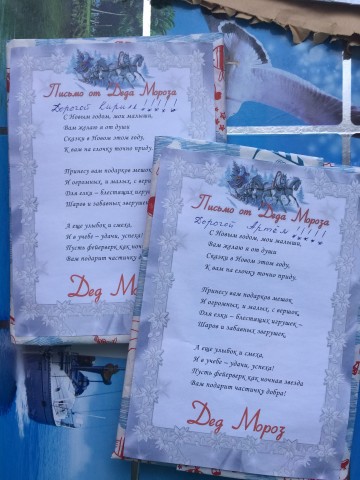 Письмо от Деда Мороза
Дорогой Кирилл!!!!!
С Новым годом, мои малыши,
Вам желаю я от души
Сказки в Новом этом году,
К вам на елочку точно приду.
Принесу вам подарков мешок
И огромных, и малых, с вершок,
Для елки – блестящих игрушек
Шаров и забавных зверушек.
А еще улыбок и смеха,
И в учебе – удачи, успеха!
Пусть фейерверк как ночная
Вам подарит частичку
Дед Мороз
Письмо от Деда Мороза
Дорогой Артём!!!!!
С Новым годом, мои малыши,
Вам желаю я от души
Сказки в Новом этом году,
К вам на елочку точно приду.
Принесу вам подарков мешок
И огромных, и малых, с вершок,
Для елки – блестящих игрушек –
Шаров и забавных зверушек.
А еще улыбок и смеха,
И в учебе – удачи, успеха!
Пусть фейерверк как ночная звезда
Вам подарит частичку добра!
Дед Мороз